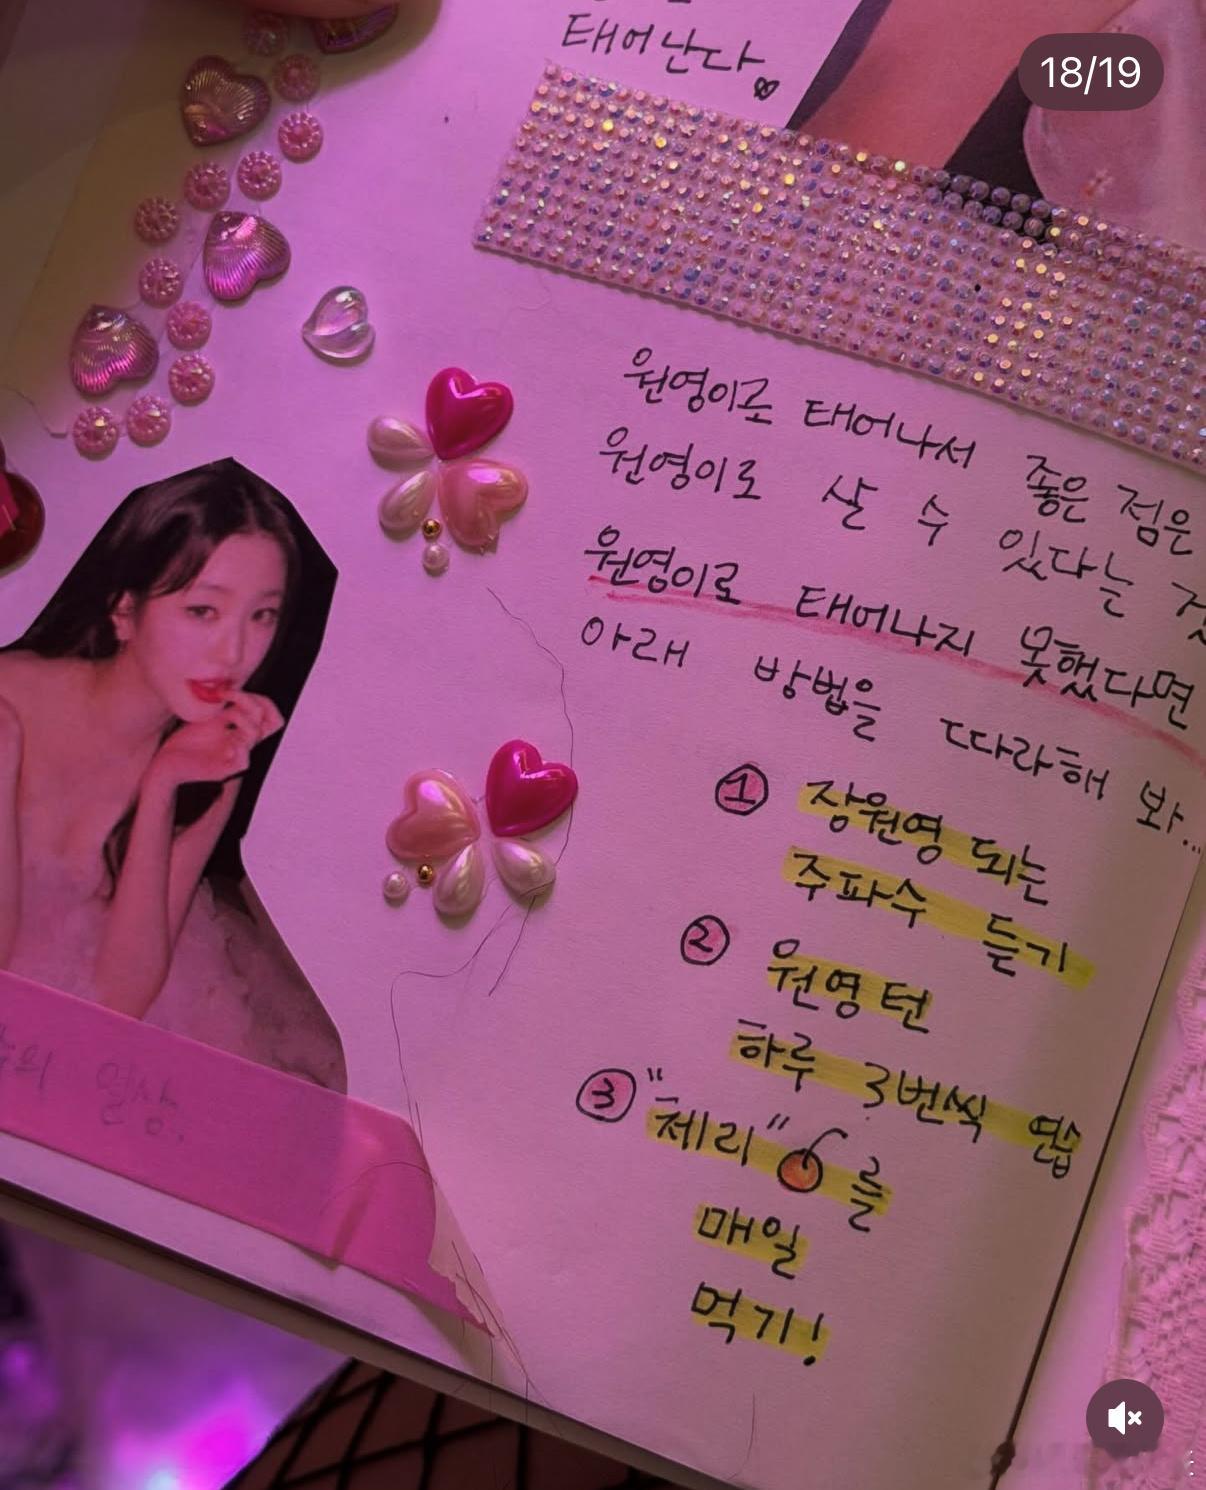 18/19
태어난다
원영이로 태어나서 좋은 점은
원영이로 살 수 있다는
원영이로 태어나지 못했다면
아래 방법을 따라해 봐...
① 장원영 되는
주파수 듣기
② 원영턴
하루 3번씩 연습
③ "체리"를
매일
먹기!